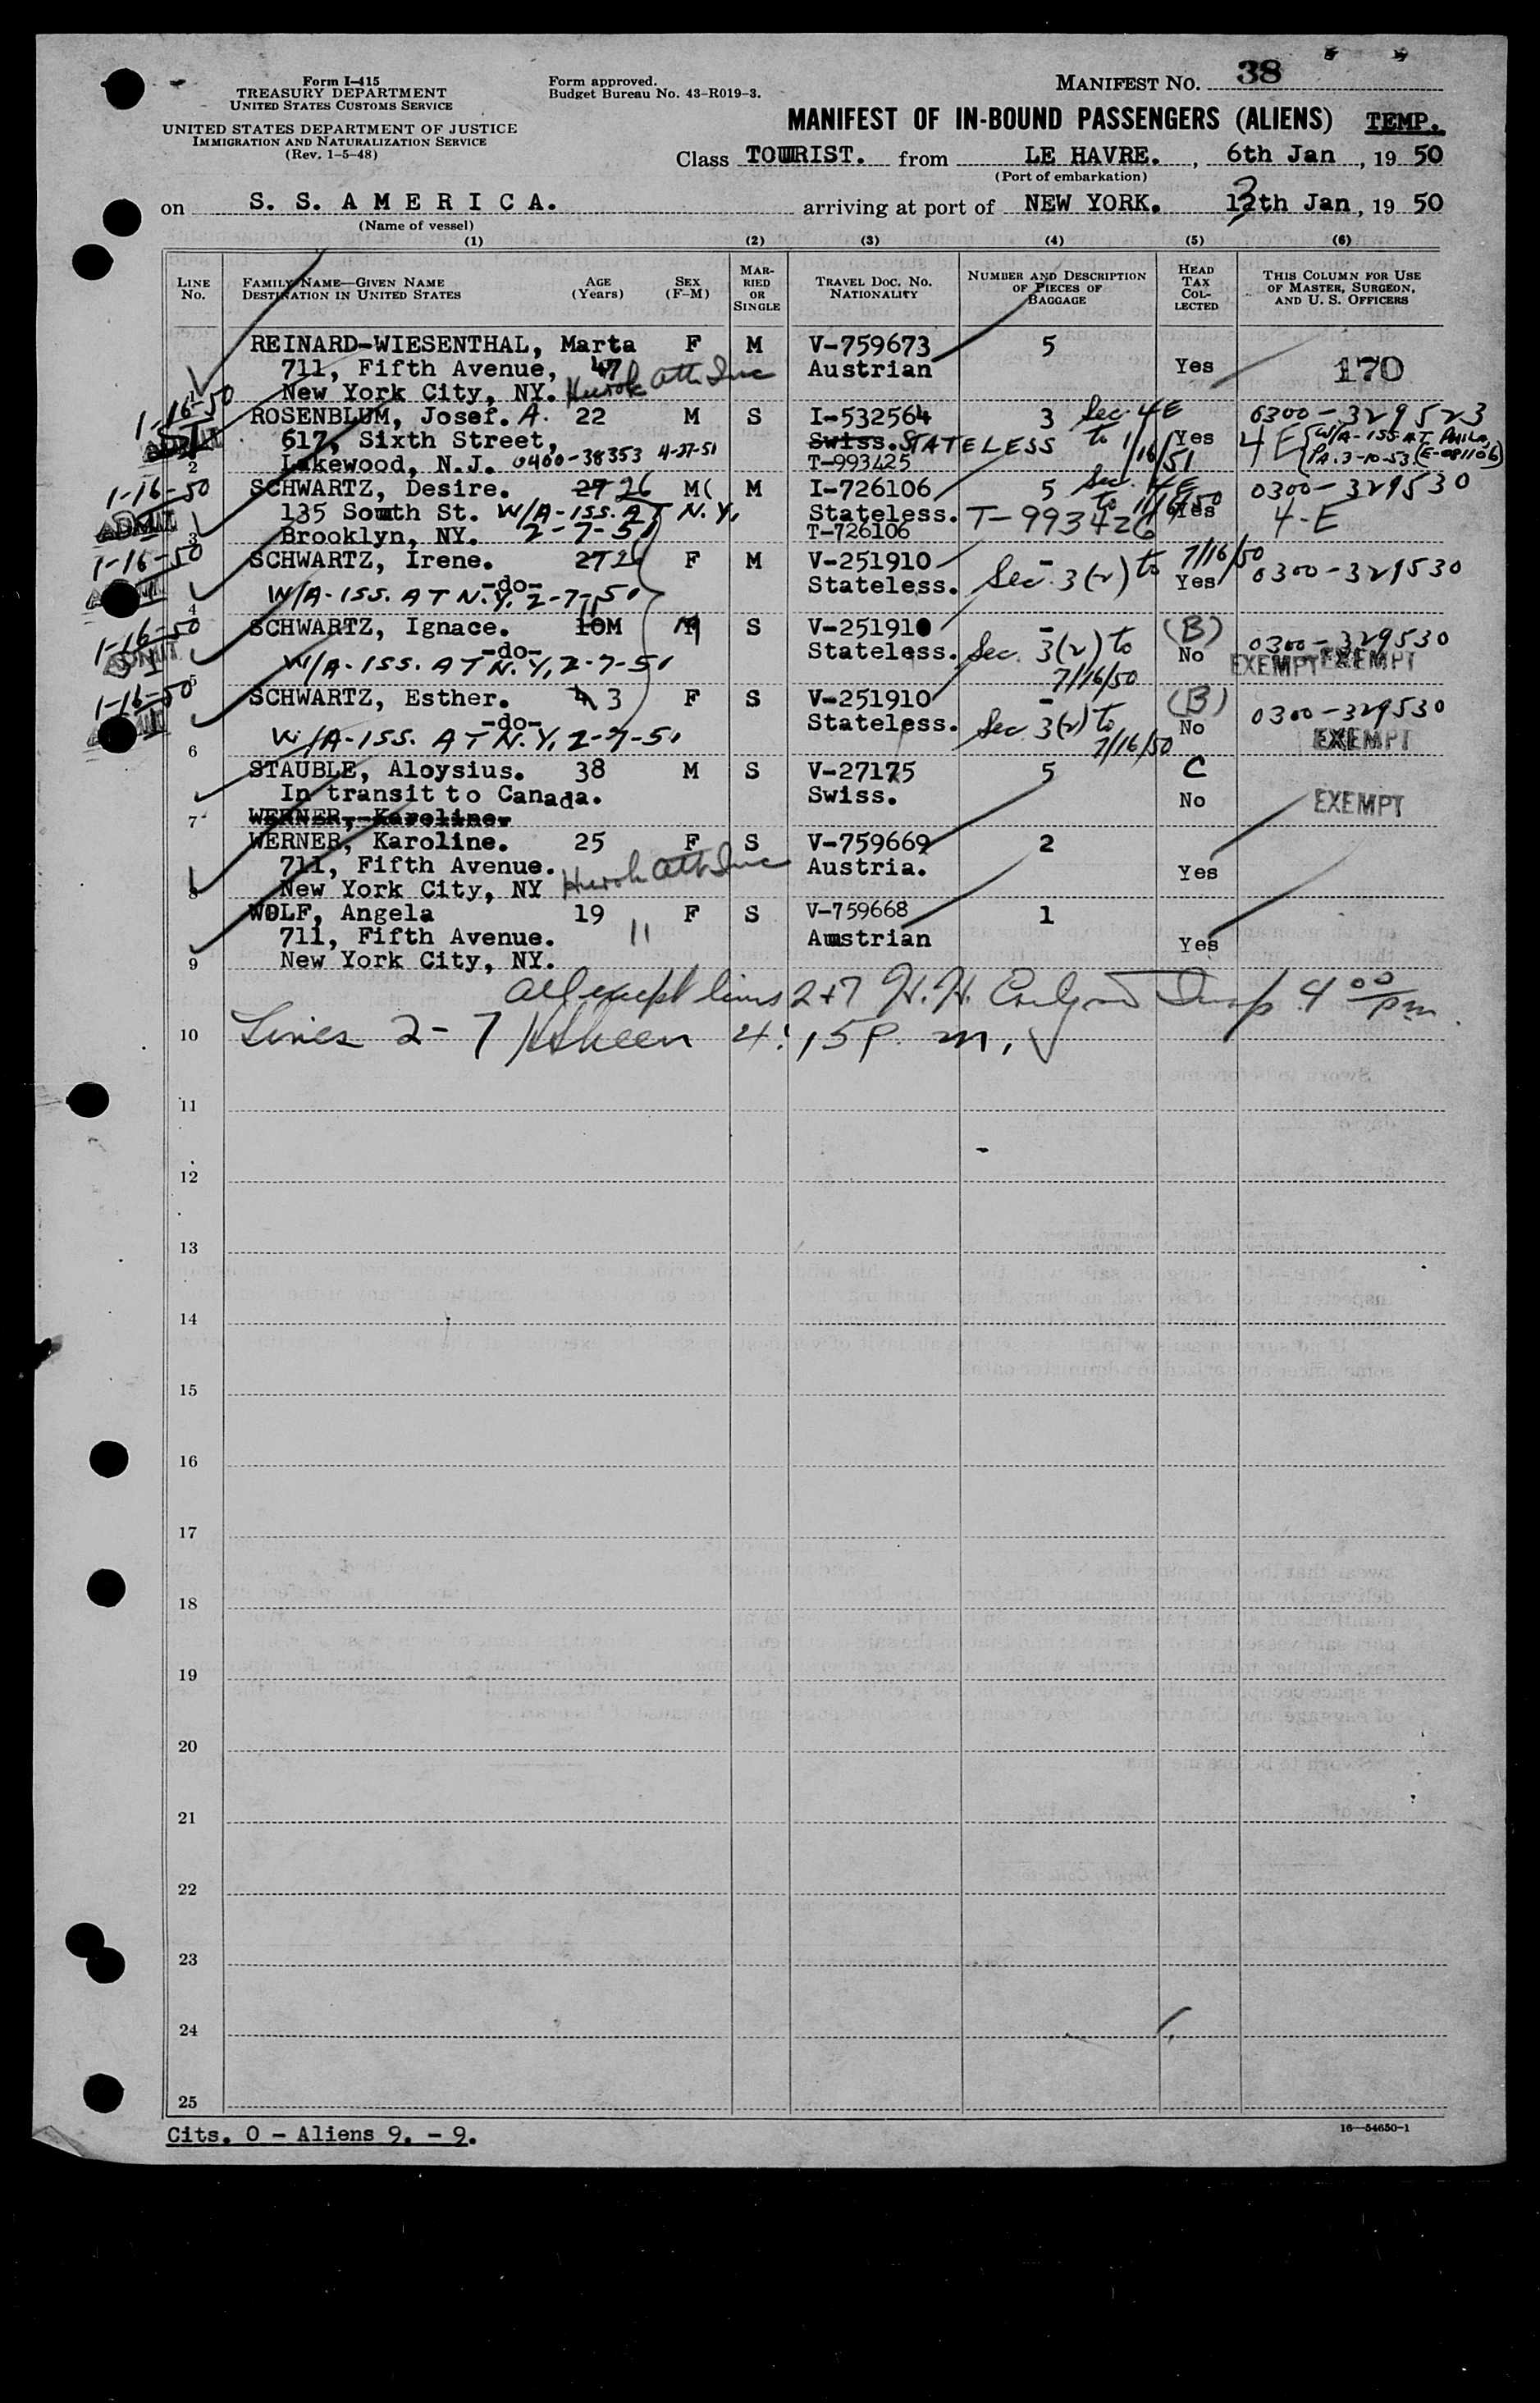 Form I-415
TREASURY DEPARTMENT
UNITED STATES CUSTOMS SERVICE
UNITED STATES DEPARTMENT OF JUSTICE
IMMIGRATION AND NATURALIZATION SERVICE
(Rev. 1-5-48)
Form approved.
Budget Bureau No. 43-R019-3.
MANIFEST NO. 38
MANIFEST OF IN-BOUND PASSENGERS (ALIENS) TEMP.
Class TOURIST. from LE HAVRE. , 6th Jan , 19 50
(Port of embarkation)
on S. S. A M E R I C A. arriving at port of NEW YORK. 13th Jan , 19 50
(Name of vessel)
(1) (2) (3) (4) (5) (6)
LINE No. FAMILY NAME—GIVEN NAME DESTINATION IN UNITED STATES AGE (Years) SEX (F-M) MARRIED OR SINGLE TRAVEL DOC. NO. NATIONALITY NUMBER AND DESCRIPTION OF PIECES OF BAGGAGE HEAD TAX COLLECTED THIS COLUMN FOR USE OF MASTER, SURGEON, AND U. S. OFFICERS
REINARD-WIESENTHAL, Marta F M V-759673 5
711, Fifth Avenue, 47 Austrian Yes 170
1 New York City, NY. Hurok Att. Inc
1-16-50 ROSENBLUM, Josef. A. 22 M S I-532564 3 Sec. 4E 0300-329523
ADMIT 617, Sixth Street, Swiss. STATELESS to 1/16/51 Yes 4E W/A-ISS. AT PHILA,
2 Lakewood, N.J. 0400-38353 4-27-51 T-993425 PA. 3-10-53 (E-081106)
1-16-50 SCHWARTZ, Desire. 27 26 M( M I-726106 5 Sec. 4E 0300-329530
ADMIT 135 South St. W/A-ISS. AT N.Y. Stateless. T-993426 to 1/16/50 Yes 4-E
3 Brooklyn, NY. 2-7-51 T-726106
1-16-50 SCHWARTZ, Irene. 27 26 F M V-251910 - 7/16/50
-do- Stateless. Sec. 3(2) to Yes 0300-329530
4 W/A-ISS. AT N.Y. 2-7-51
1-16-50 SCHWARTZ, Ignace. 10M 11 M S V-251910 - (B) 0300-329530
ADMIT -do- Stateless. Sec. 3(2) to No EXEMPT EXEMPT
5 W/A-ISS. AT N.Y, 2-7-51 7/16/50
1-16-50 SCHWARTZ, Esther. 4 3 F S V-251910 - (B) 0300-329530
-do- Stateless. Sec 3(2) to No
6 W/A-ISS. AT N.Y, 2-7-51 7/16/50 EXEMPT
STAUBLE, Aloysius. 38 M S V-27175 5 C
In transit to Canada. Swiss. No EXEMPT
7 WERNER, Karoline.
WERNER, Karoline. 25 F S V-759669 2
711, Fifth Avenue. Austria. Yes
8 New York City, NY Hurok Att Inc
WOLF, Angela 19 F S V-759668 1
711, Fifth Avenue. 11 Austrian Yes
9 New York City, NY.
all except lines 2+7 H.H. Insp 4 00 pm.
10 Lines 2-7 4:15 P. m.
11
12
13
14
15
16
17
18
19
20
21
22
23
24
25
Cits. 0 - Aliens 9. - 9.
16—54650-1